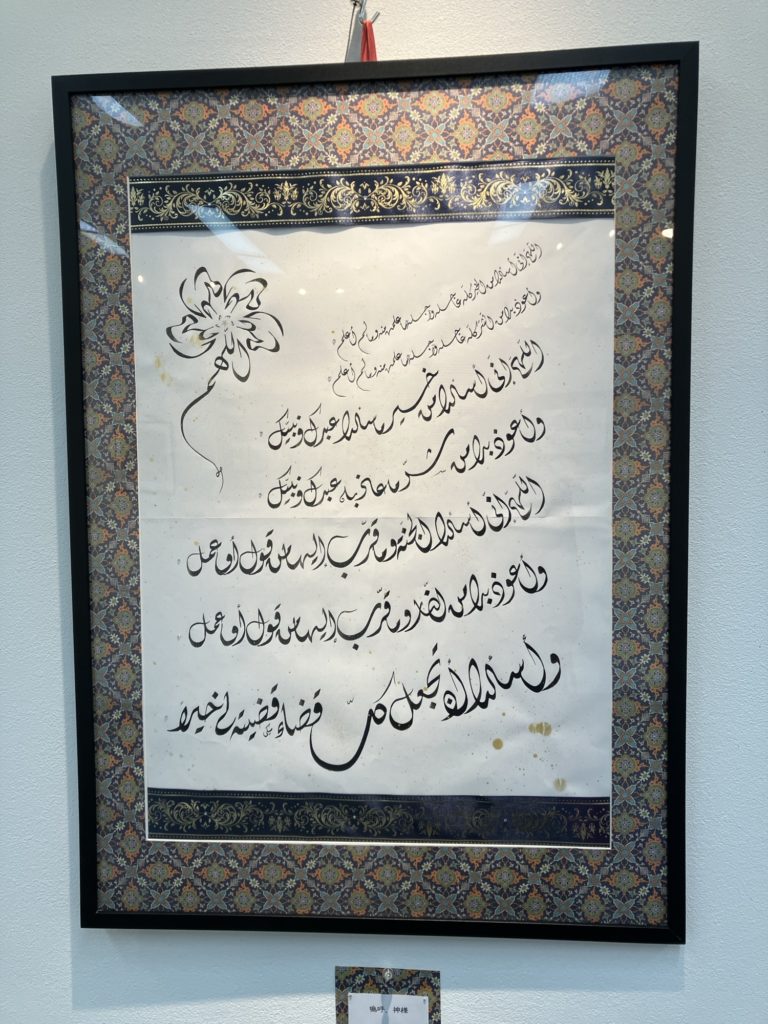 اللهم
اللهم إني أسألك من الخير كله عاجله وآجله ما علمت منه وما لم أعلم
وأعوذ بك من الشر كله عاجله وآجله ما علمت منه وما لم أعلم
اللهم إني أسألك من خير ما سألك عبدك ونبيك
وأعوذ بك من شر ما عاذ به عبدك ونبيك
اللهم إني أسألك الجنة وما قرب إليها من قول أو عمل
وأعوذ بك من النار وما قرب إليها من قول أو عمل
وأسألك أن تجعل كل قضاء قضيته لي خيرا
嗚呼、神様